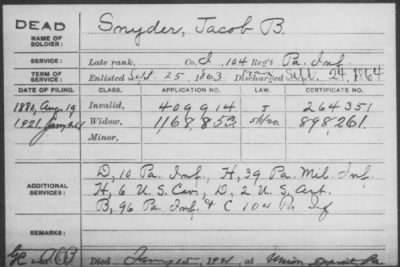 DEAD
NAME OF SOLDIER:
Snyder, Jacob B.
SERVICE:
Late rank, Co. I, 104 Reg't Pa. Inf.
TERM OF SERVICE:
Enlisted Sept. 25, 1863 Discharged Sept. 24, 1864
DATE OF FILING. CLASS. APPLICATION NO. LAW. CERTIFICATE NO.
1880, Aug. 19 Invalid, 409914 J 264351
1921, Widow, 1,168,853 898,261
Minor,
ADDITIONAL SERVICES:
D, 10 Pa. Inf., H, 39 Pa. Mil. Inf.
H, 6 U.S. Cav., D, 2 U.S. Art.
B, 96 Pa. Inf. & C 104 Pa. Inf
REMARKS:
Died 15, 1921, at Union